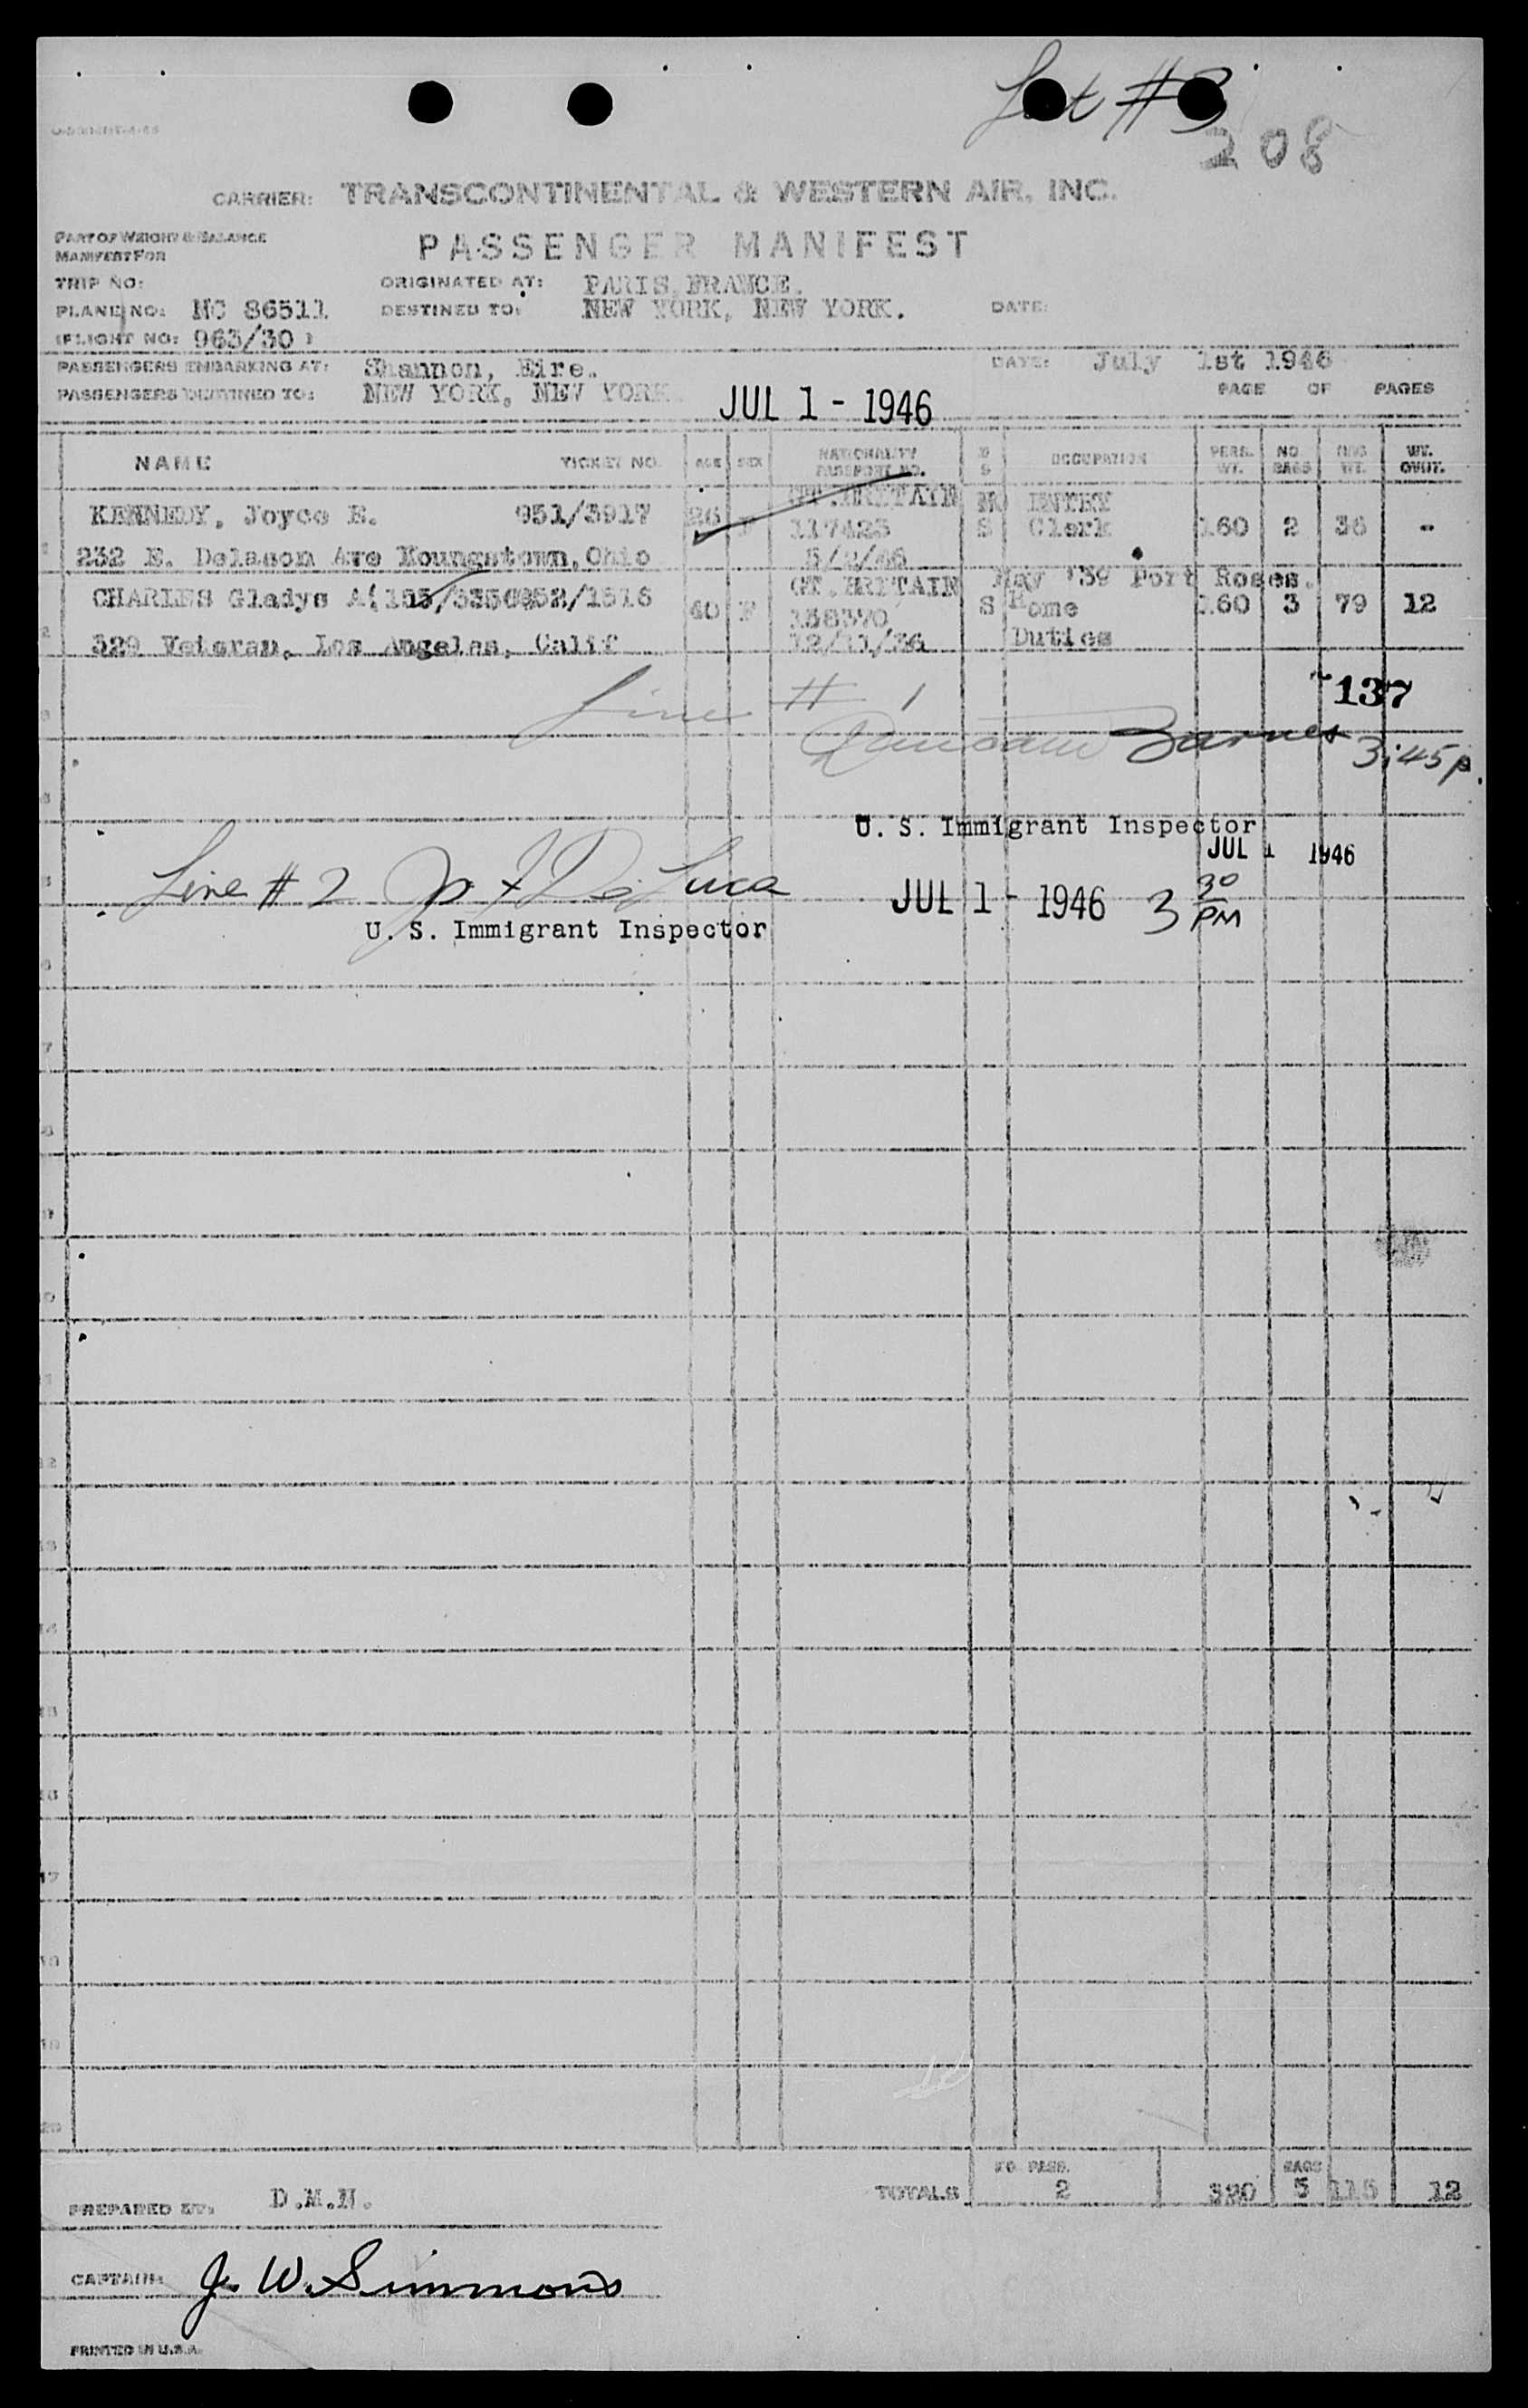 Lot #3
208
CARRIER: TRANSCONTINENTAL & WESTERN AIR, INC.
PART OF WEIGHT & BALANCE
MANIFEST FOR
PASSENGER MANIFEST
TRIP NO: ORIGINATED AT: PARIS, FRANCE.
PLANE NO: NC 86511 DESTINED TO: NEW YORK, NEW YORK. DATE:
(FLIGHT NO: 963/30 )
PASSENGERS EMBARKING AT: Shannon, Eire. DATE: July 1st 1946
PASSENGERS DESTINED TO: NEW YORK, NEW YORK PAGE OF PAGES
JUL 1 - 1946
NAME TICKET NO. AGE SEX NATIONALITY PASSPORT NO. OCCUPATION PERS. WT. NO. BAGS BAG WT. WT. OVER.
KENNEDY, Joyce E. 951/3917 26 F GT.BRITAIN 117423 5/2/46 S Clerk 160 2 36 -
232 E. Delason Ave Youngstown, Ohio
May '39 Port Roses.
CHARLES Gladys A 952/1516 40 F GT.BRITAIN 138370 S Home Duties 160 3 79 12
329 Veteran, Los Angeles, Calif
Line # 1
137
Barnes 3:45 p.
U. S. Immigrant Inspector
JUL 1 1946
Line # 2 De Luca
JUL 1 - 1946 3 30 PM
U. S. Immigrant Inspector
7
12
17
TOTALS NO PASS. 2 320 BAGS 5 115 12
PREPARED BY: D.M.H.
CAPTAIN: J. W. Simmons
PRINTED IN U.S.A.